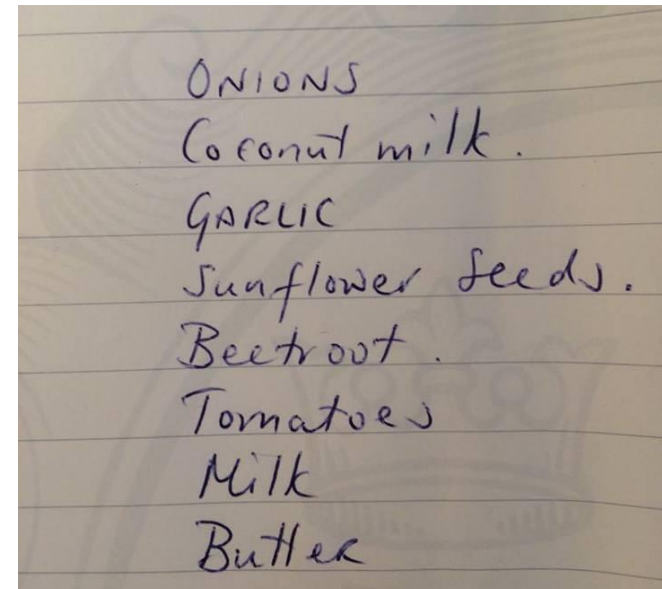 ONIONS
Coconut milk.
GARLIC
Sunflower Seeds.
Beetroot.
Tomatoes
Milk
Butter